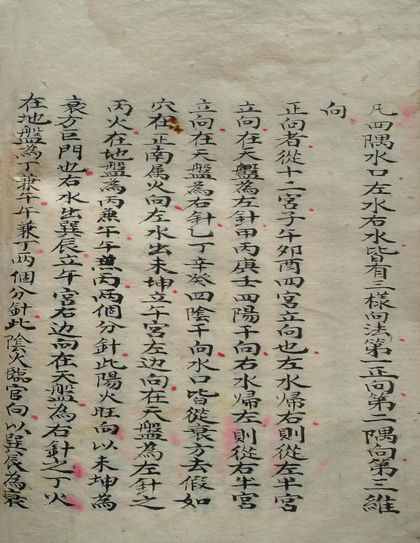 凡四隅水口左水右水皆有三樣向法第一正向第一隅向第三維
向
正向者從十二宮子午卯酉四宮立向也左水歸右則從左半宮
立向在天盤為左針甲丙庚壬四陽干向右水歸左則從右半宮
立向在天盤為右針乙丁辛癸四陰干向水口皆從衰方去假如
穴在正南属火向左水出未坤立午宮左边向在天盤為左針之
丙火在地盤為丙兼午午兼丙两個分針此陽火旺向以未坤為
衰方巨門也右水出巽辰立午宮右边向在天盤為右針之丁火
在地盤為丁兼午午兼丁两個分針此陰火臨官向以巽辰為衰